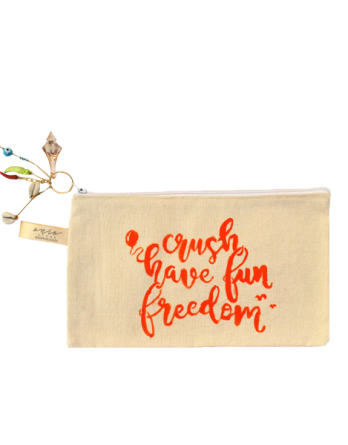 crush
have fun
freedom